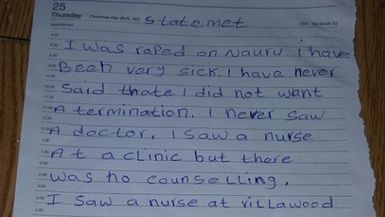 25
Thursday
Statemet
I was raped on Nauru i have
Been very sick. I have never
Said thate I did not want
A termination. I never saw
A doctor, I saw a nurse
At a clinic but there
was no counselling.
I saw a nurse at villawood